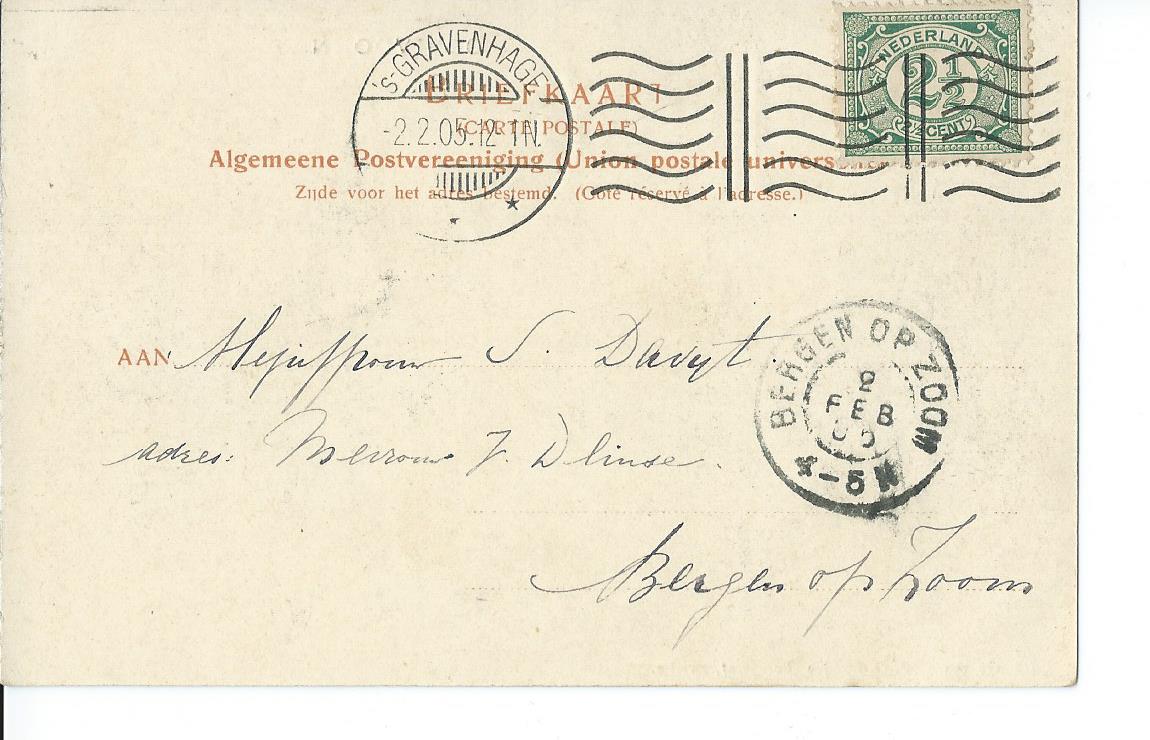 'S-GRAVENHAGE
-2.2.05.12-1N.
NEDERLAND
2½
2½ CENT
BRIEFKAART
(CARTE POSTALE)
Algemeene Postvereeniging (Union postale universelle)
Zijde voor het adres bestemd. (Côté réservé à l'adresse.)
BERGEN OP ZOOM
2
FEB
05
4-5N
AAN Mejuffrouw S. Davijt.
adres: Mevrouw J.
Bergen op Zoom